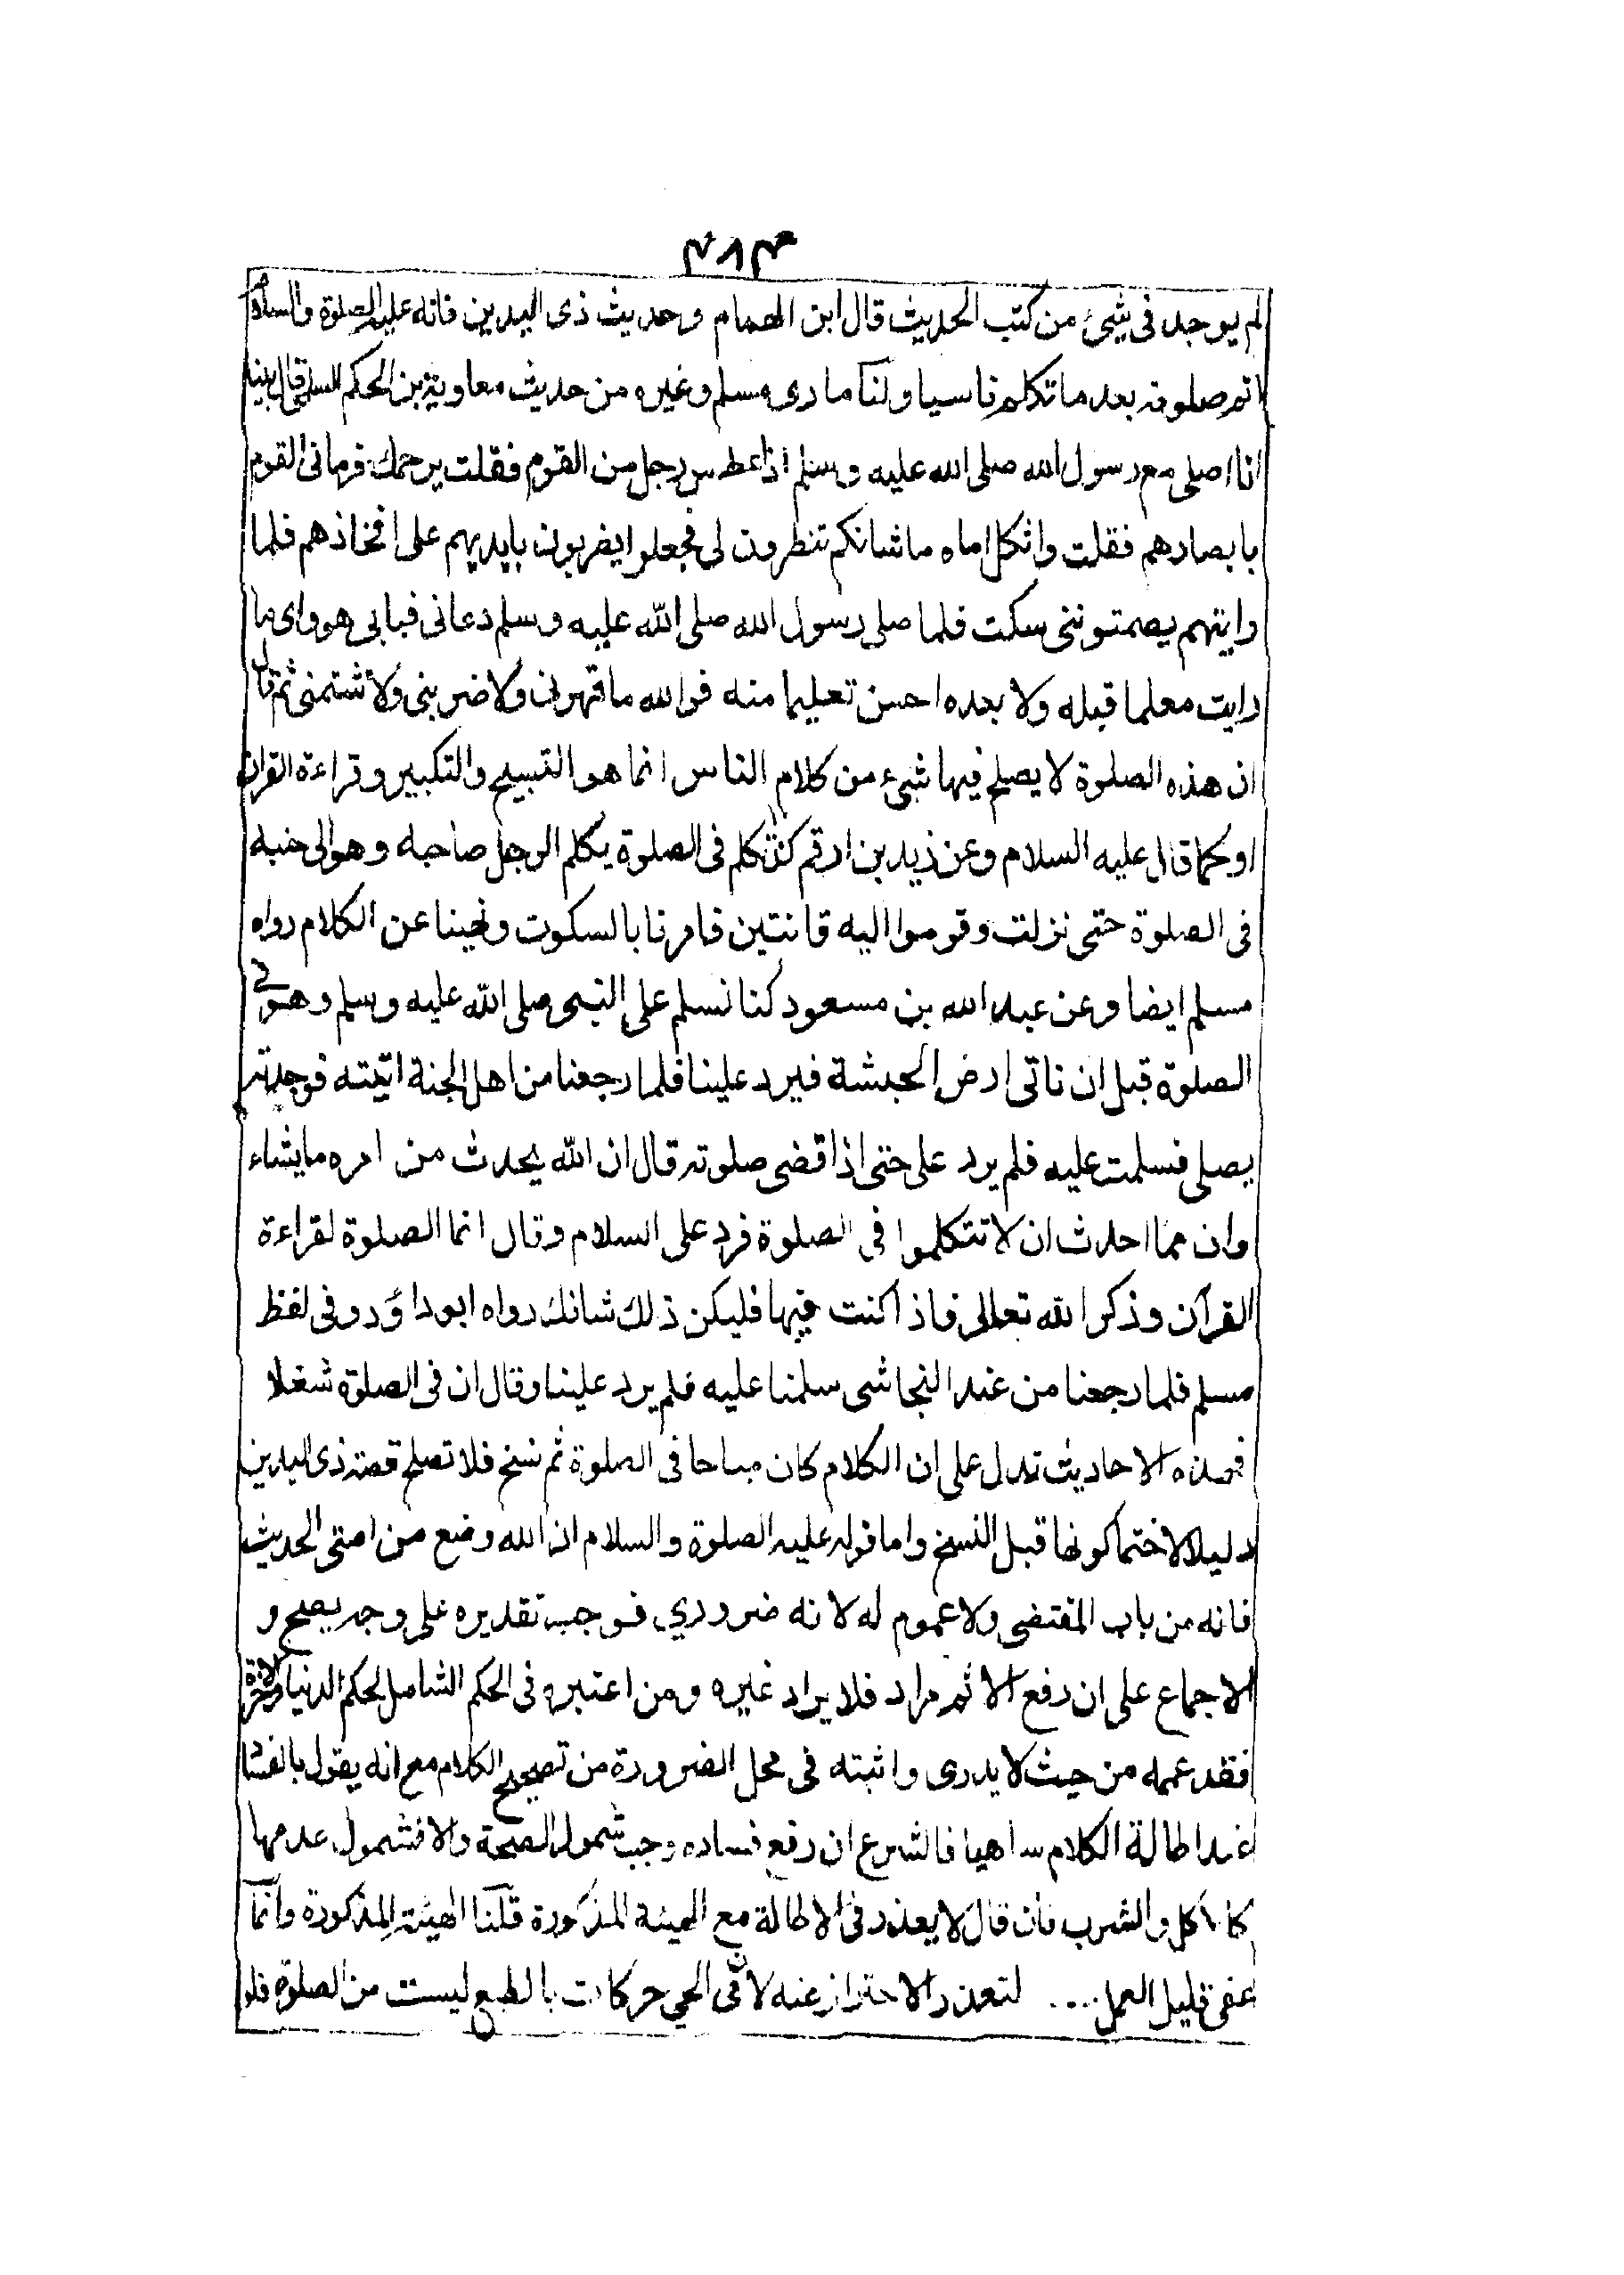 ٣٨٣
لم يوجد فى شئ من كتب الحديث قال ابن الهمام وحديث ذى اليدين فانه عليه الصلوة والسلام
اتم صلوته بعد ما تكلم ناسيا ولنا ما روى مسلم وغيره من حديث معاوية بن الحكم السلمى قال بينا
انا اصلى مع رسول الله صلى الله عليه وسلم اذا عطس رجل من القوم فقلت يرحمك فرمانى القوم
بابصارهم فقلت واثكل اماه ما شانكم تنظرون لى فجعلوا يضربون بايديهم على افخاذهم فلما
رايتهم يصمتوننى سكت فلما صلى رسول الله صلى الله عليه وسلم دعانى فبابى هو وامى ما
رايت معلما قبله ولا بعده احسن تعليما منه فوالله ما قهرنى ولا ضربنى ولا شتمنى ثم قال
ان هذه الصلوة لا يصلح فيها شىء من كلام الناس انما هو التسبيح والتكبير وقراءة القران
او كما قال عليه السلام وعن زيد بن ارقم كنا نتكلم فى الصلوة يكلم الرجل صاحبه وهو الى جنبه
فى الصلوة حتى نزلت وقوموا اليه قانتين فامرنا بالسكوت ونهينا عن الكلام رواه
مسلم ايضا وعن عبد الله بن مسعود كنا نسلم على النبى صلى الله عليه وسلم وهو فى
الصلوة قبل ان ناتى ارض الحبشة فيرد علينا فلما رجعنا من اهل الجنة اتيته فوجدته
يصلى فسلمت عليه فلم يرد على حتى اذا قضى صلوته قال ان الله يحدث من امره ما يشاء
وان مما احدث ان لا تتكلموا فى الصلوة فرد على السلام وقال انما الصلوة لقراءة
القرآن وذكر الله تعالى فاذا كنت فيها فليكن ذلك شانك رواه ابو داؤد وفى لفظ
مسلم فلما رجعنا من عند النجاشى سلمنا عليه فلم يرد علينا وقال ان فى الصلوة شغلا
فهذه الاحاديث تدل على ان الكلام كان مباحا فى الصلوة ثم نسخ فلا تصلح قصة ذى اليدين
دليلا لاحتما كونها قبل النسخ واما قوله عليه الصلوة والسلام ان الله وضع من امتى الحديث
فانه من باب المقتضى ولا عموم له لانه ضروري فوجب تقديره على وجه يصح و
الاجماع على ان رفع الاثم مراد فلا يراد غيره ومن اعتبره فى الحكم الشامل لحكم الدنيا والاخرة
فقد عممه من حيث لا يدرى واثبته فى محل الضرورة من تصحيح الكلام مع انه يقول بالفساد
عند اطالة الكلام ساهيا فالشرع ان رفع فساده وجب شمول الصحة والا فشمول عدمها
كالاكل والشرب فان قال لا يعذر فى الاطالة مع الهيئة المذكورة قلنا الهيئة المذكورة وانما
عفى قليل العمل .... لتعذر الاحتراز عنه لان فى الحي حركات بالطبع ليست من الصلوة فلو